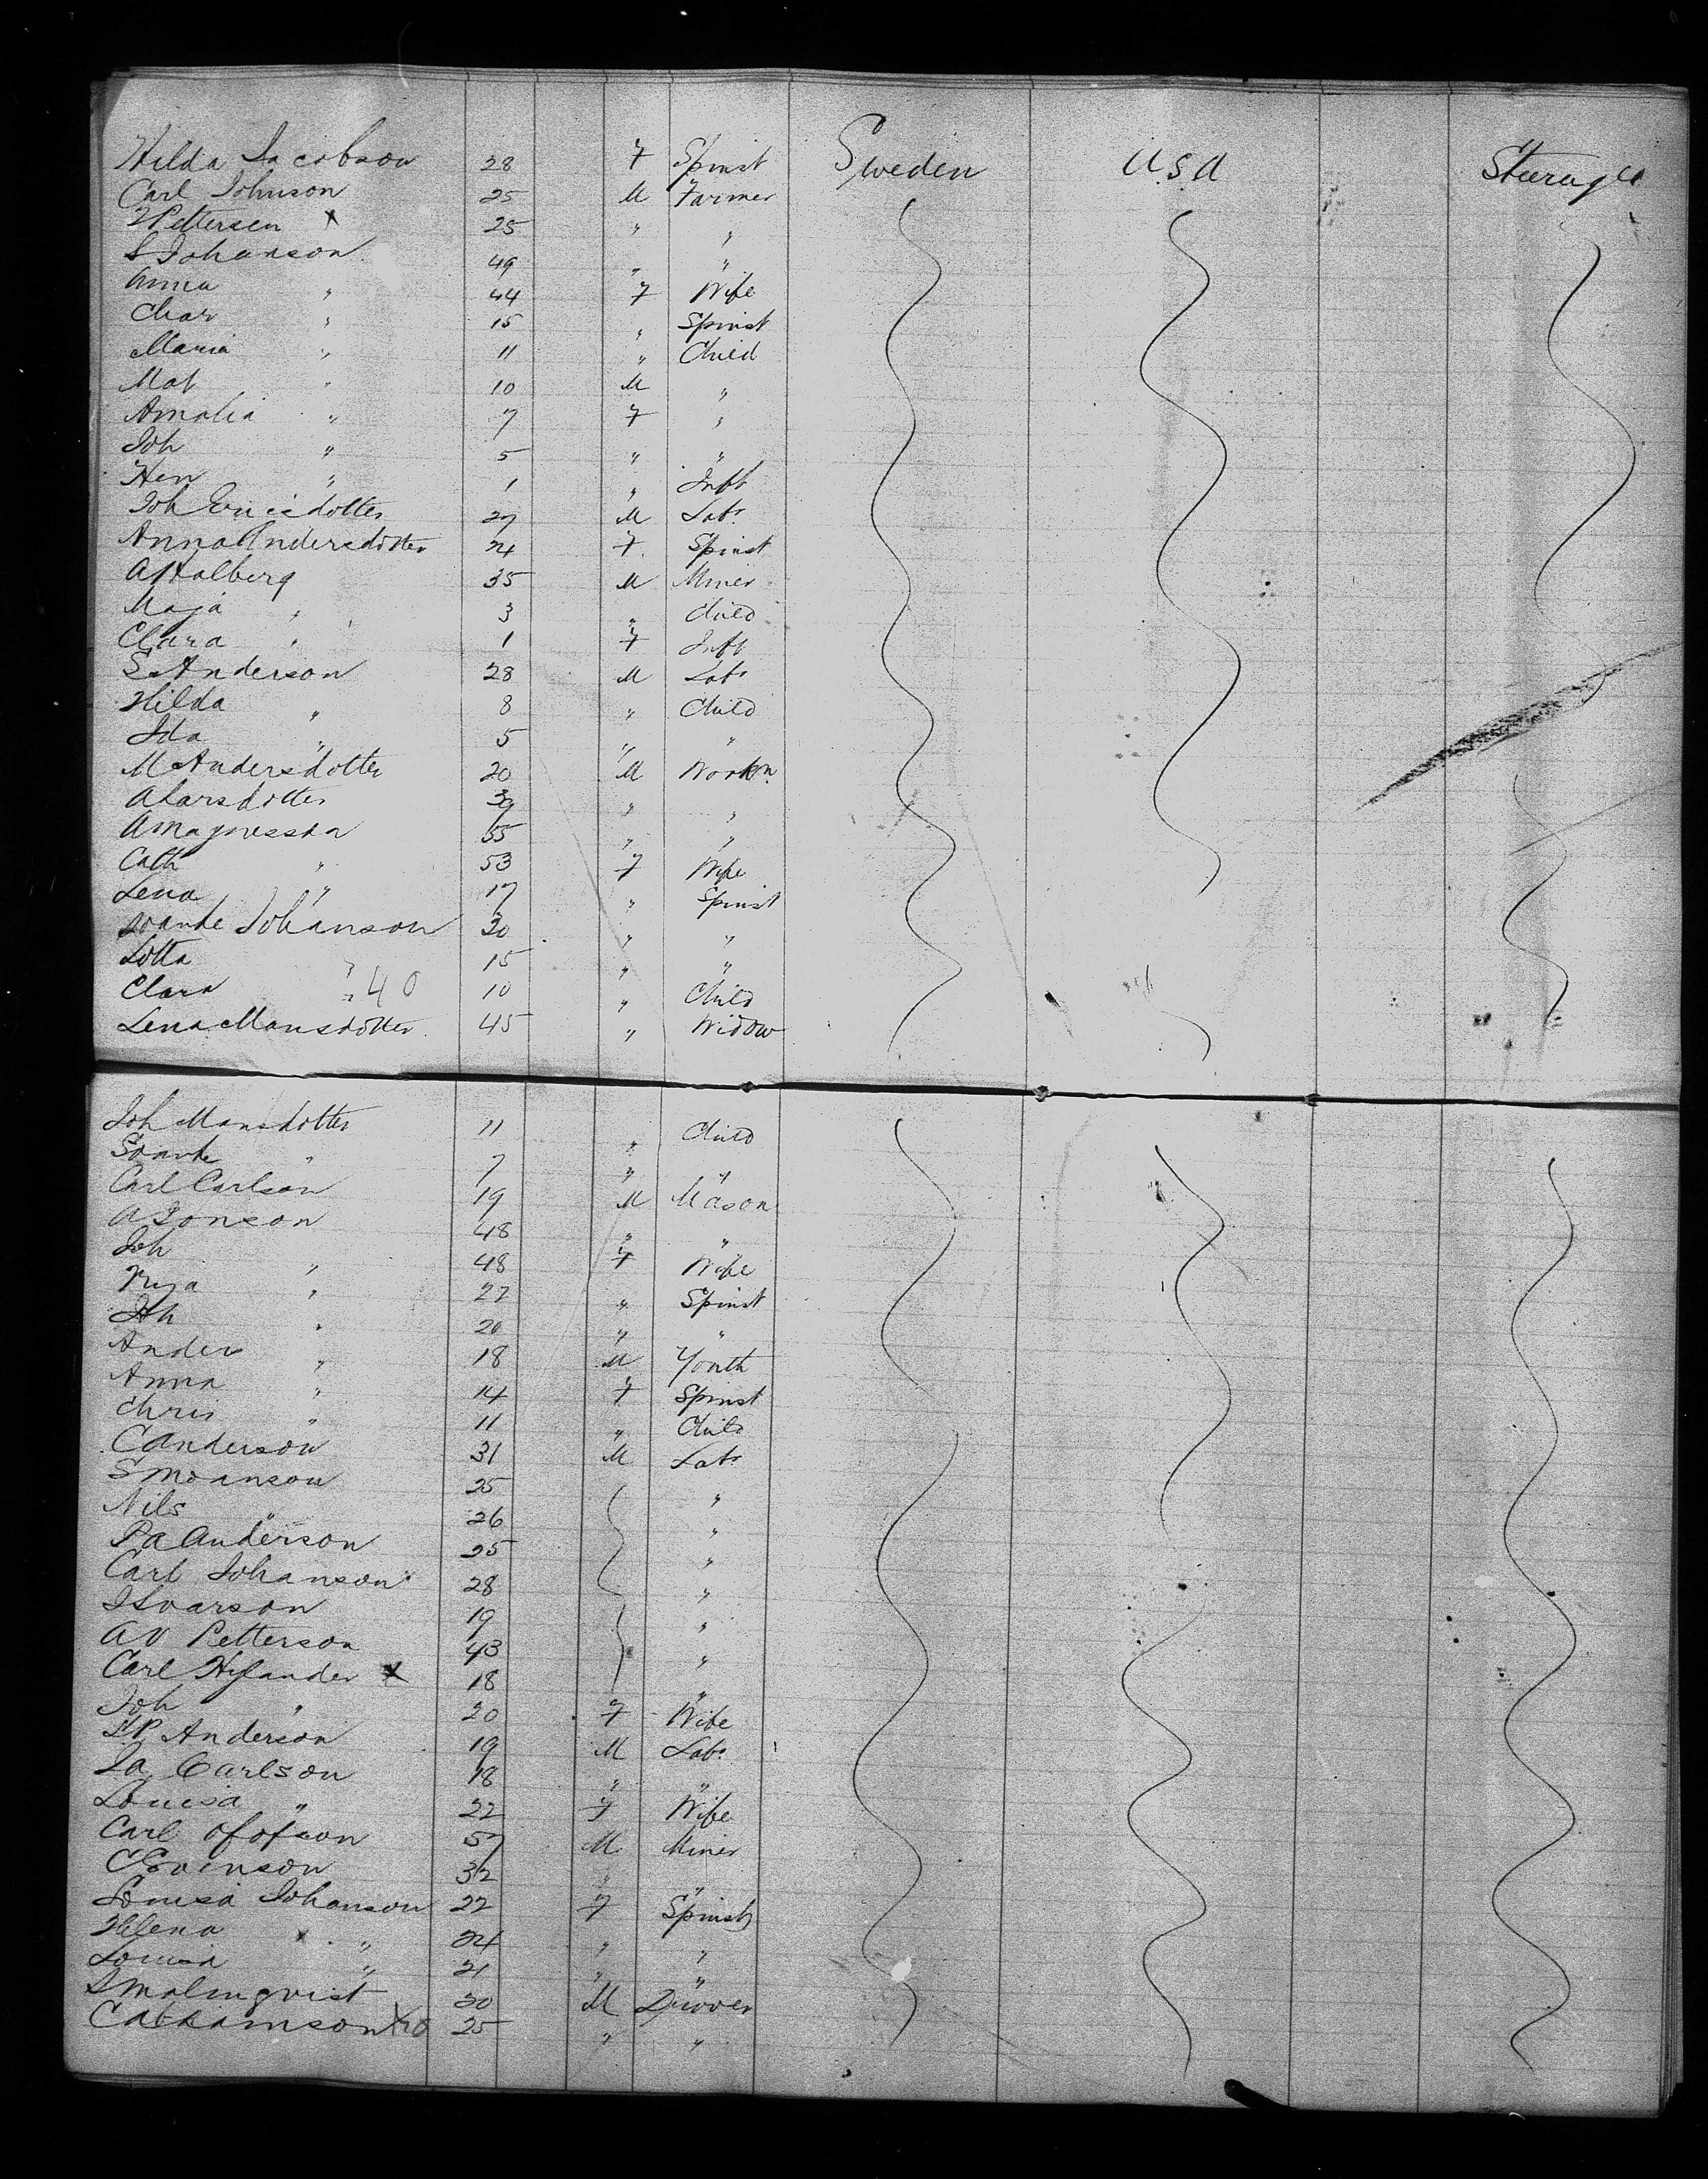 Hilda Jacobson 28 F Spinst Sweden U.S.A Steerage
Carl Johnson 25 M Farmer
Pettersen x 25 " "
S Johanson 49 " "
Anna " 44 F Wife
Char " 15 " Spinst
Maria " 11 " Child
Mat " 10 M "
Amalia " 7 F "
Joh " 5 " "
Hen " 1 " Inft
Joh 27 M Labr
Anna Andersdotter 24 F Spinst
A Stalberg 35 M Miner
Maja " 3 " Child
Clara " 1 F Inft
S Anderson 28 M Labr
Hilda " 8 " Child
Ida " 5 " "
M Andersdotter 20 M Workn
A Larsdotter 39 " "
A Magnesson 55 " "
Cath " 53 F Wife
Lena " 17 " Spinst
Svante Johanson 20 " "
Lotta " 15 " "
Clara " 40 10 " Child
Lena Mansdotter 45 " Widow
Joh Mansdotter 11 " Child
Svante " 7 " "
Carl Carlson 19 M Mason
A Jonson 48 " "
Joh " 48 F Wife
" 22 " Spinst
" 20 " "
Ander " 18 M Youth
Anna " 14 F Spinst
Chris " 11 " Child
C Anderson 31 M Labr
S Moanson 25 "
Nils " 26 "
P A Anderson 25 "
Carl Johanson 28 "
J Ivarson 19 "
A V Petterson 43 "
Carl Hylander x 18 "
Joh " 20 F Wife
P Anderson 19 M Labr
Ja Carlson 18 " "
Louisa " 22 F Wife
Carl Ofofson 57 M Miner
C Svenson 32 " "
Louisa Johanson 22 F Spinst
Helena " 24 " "
Louisa " 21 " "
S Malmqvist 30 M Drover
C Abramson x 20 25 " "